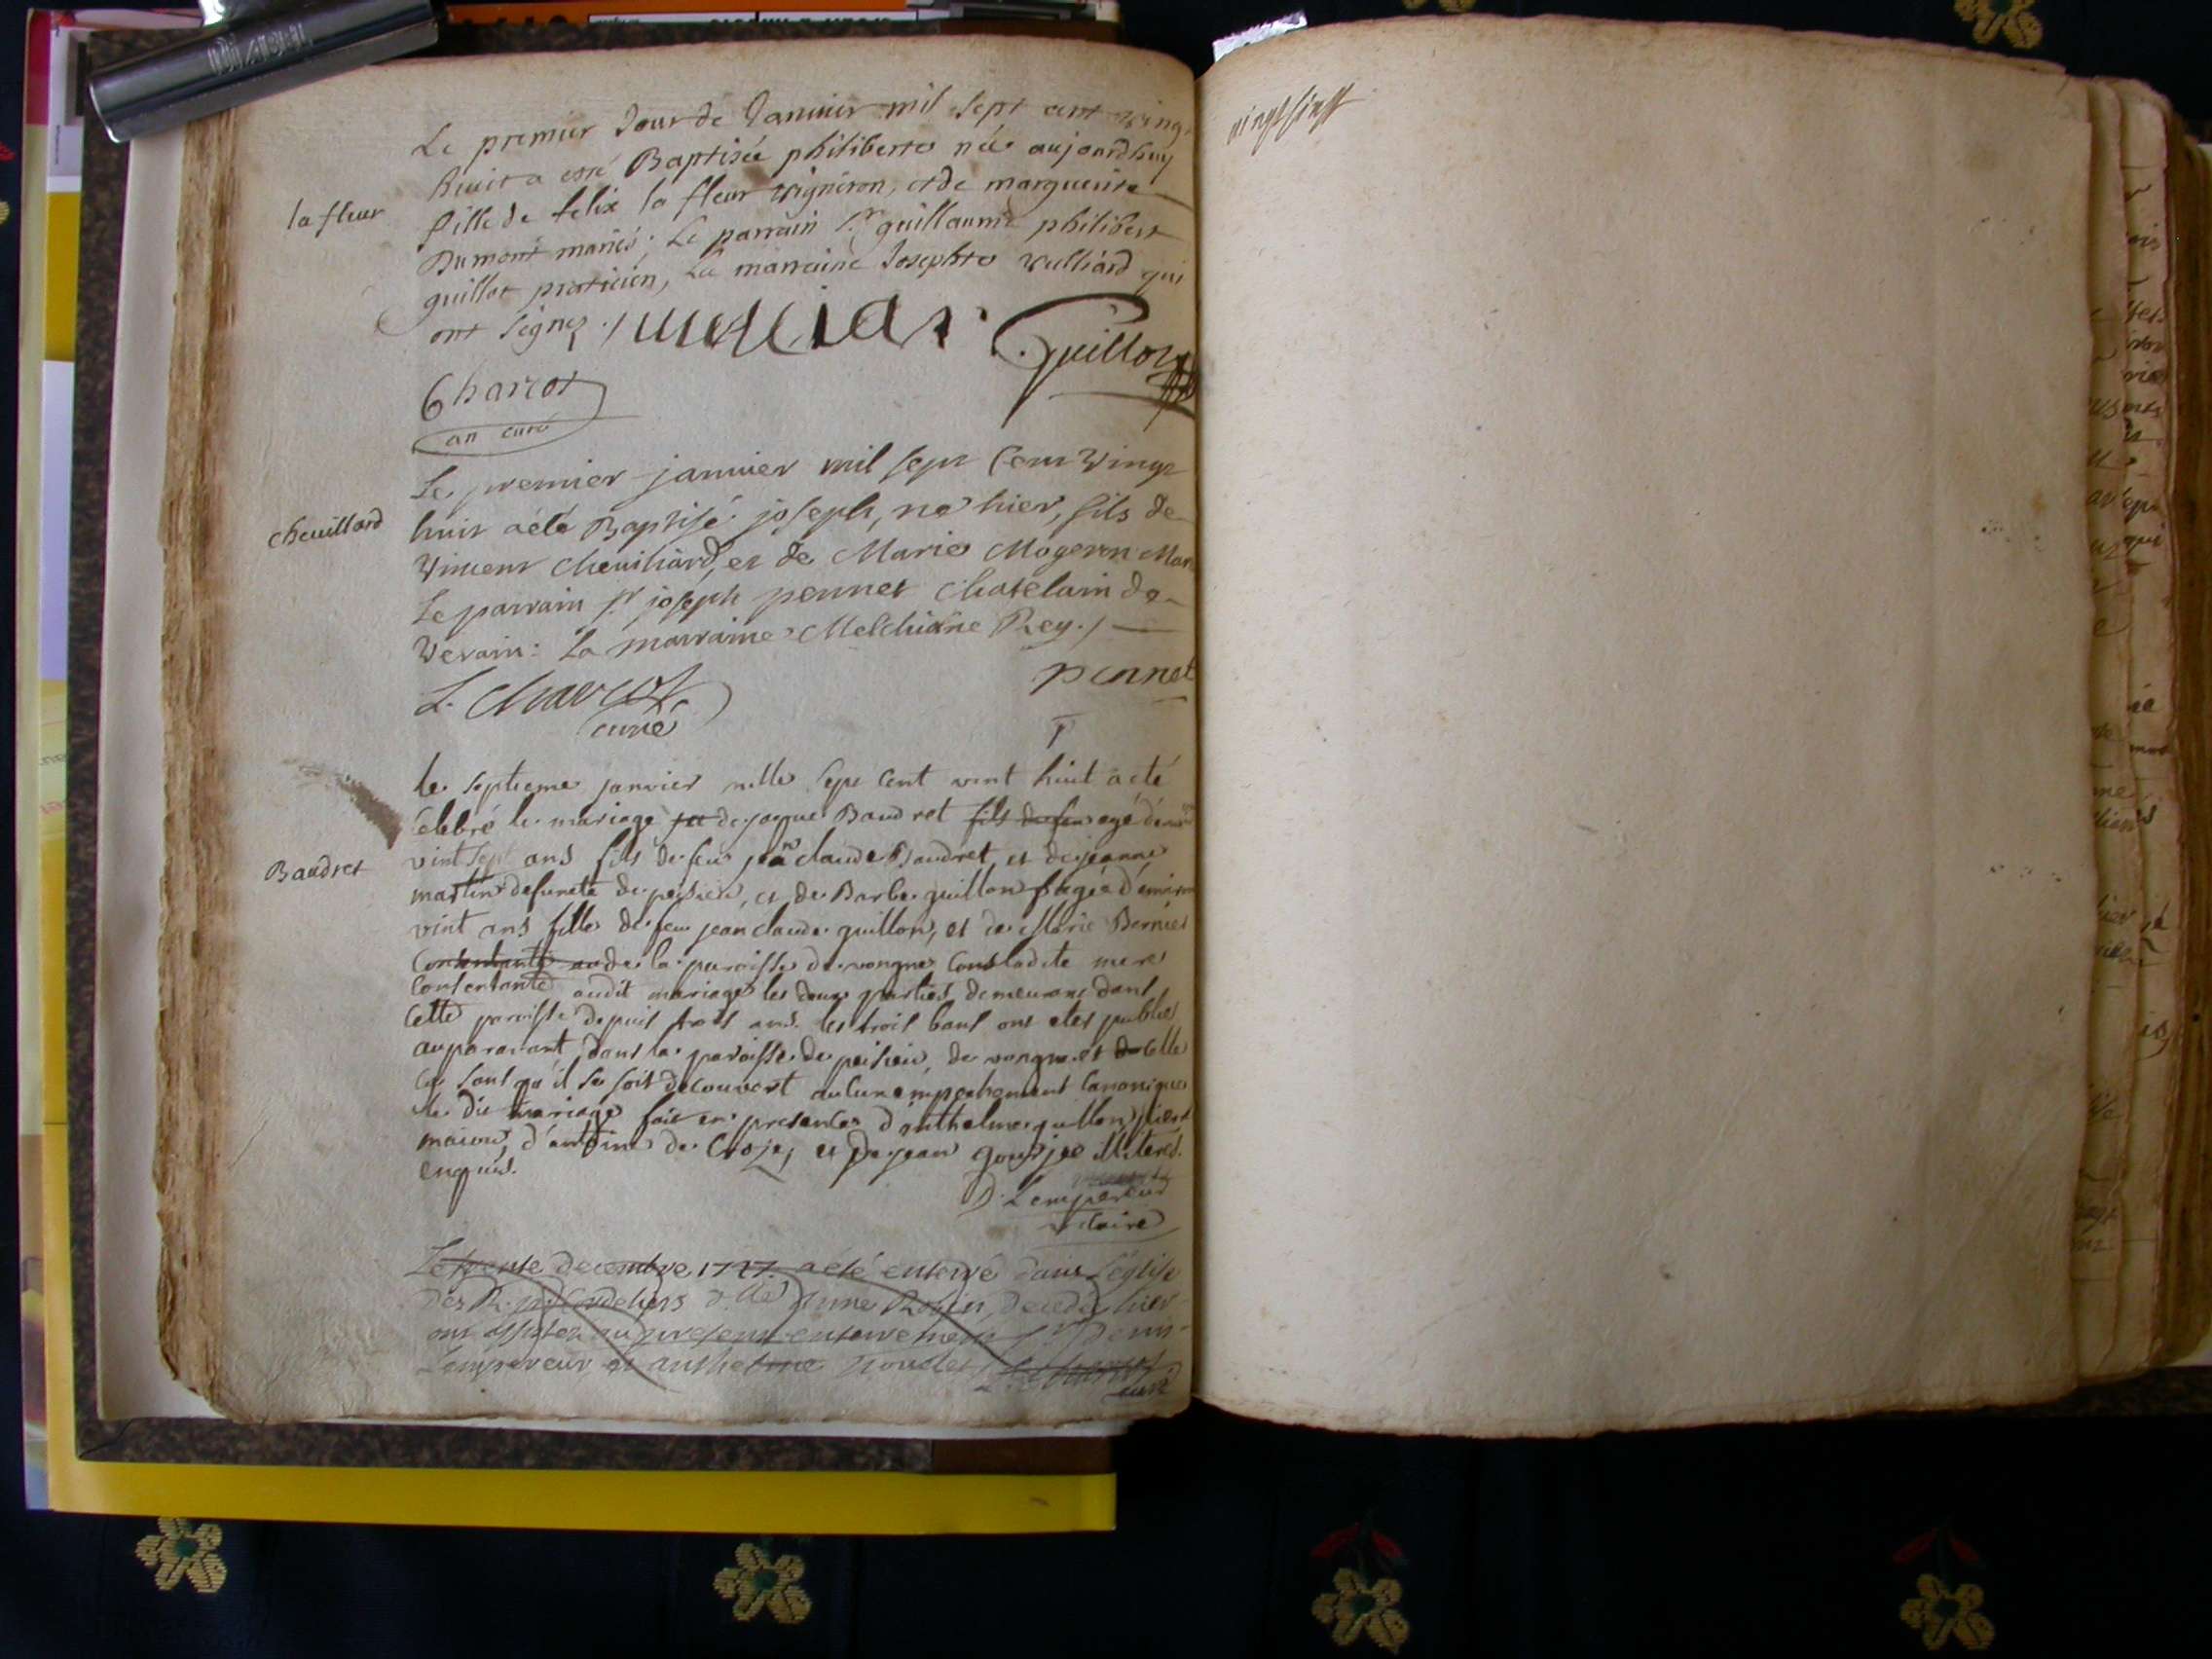 Le premier Jour de Janvier mil sept cent vingt
huit a esté Baptisée philiberte née aujourdhuy
la fleur
fille de felix la fleur vigneron, et de marguerite
Dumont mariés; Le parrain Sr. guillaume philibert
guillot praticien, La marraine Josephte vulliard qui
ont signez ./.
Guillot
Charcot
curé
Le premier janvier mil sept cent vingt
chevillard
huit a été Baptisé joseph, né hier, fils de
Vincent chevilliard, et de Marie Mogeron
Le parrain sr joseph pennet chatelain de
Verain: La marraine Melchiane Rey./
pennet
L. Charcot
curé
le septieme janvier mille sept cent vint huit a eté
Celebré le mariage de jaque Baudret fils de feu agé
Baudret
vint sept ans fils de feu jean claude Baudret, et de jeanne
martin defuncte de peisieu, et de Barbe guillon agée d'environ
vint ans fille de feu jean claude guillon, et de Marie Bernier
Consentante au de la paroisse de vongne ladite mere
Consentante audit mariage les deux parties demeurant dans
Cette paroisse depuis trois ans. les trois bans ont etes publies
auparavant dans la paroisse de peisieu, de vongne et de Celle
Cy sans qu'il se soit decouvert aucun empechement Canonique
le dit mariage fait en presence d'anthelme guillon
d'antoine de Croze, et de jean illiterés
enquis.
D. Lempereur
vicaire
Le trente decembre 1727. a été enterré dans L'église
des R. p. Cordeliers dlle Anne Robin, decedée hier
ont assistez au present enterrement sr Denis
Lempereur et anthelme
curé